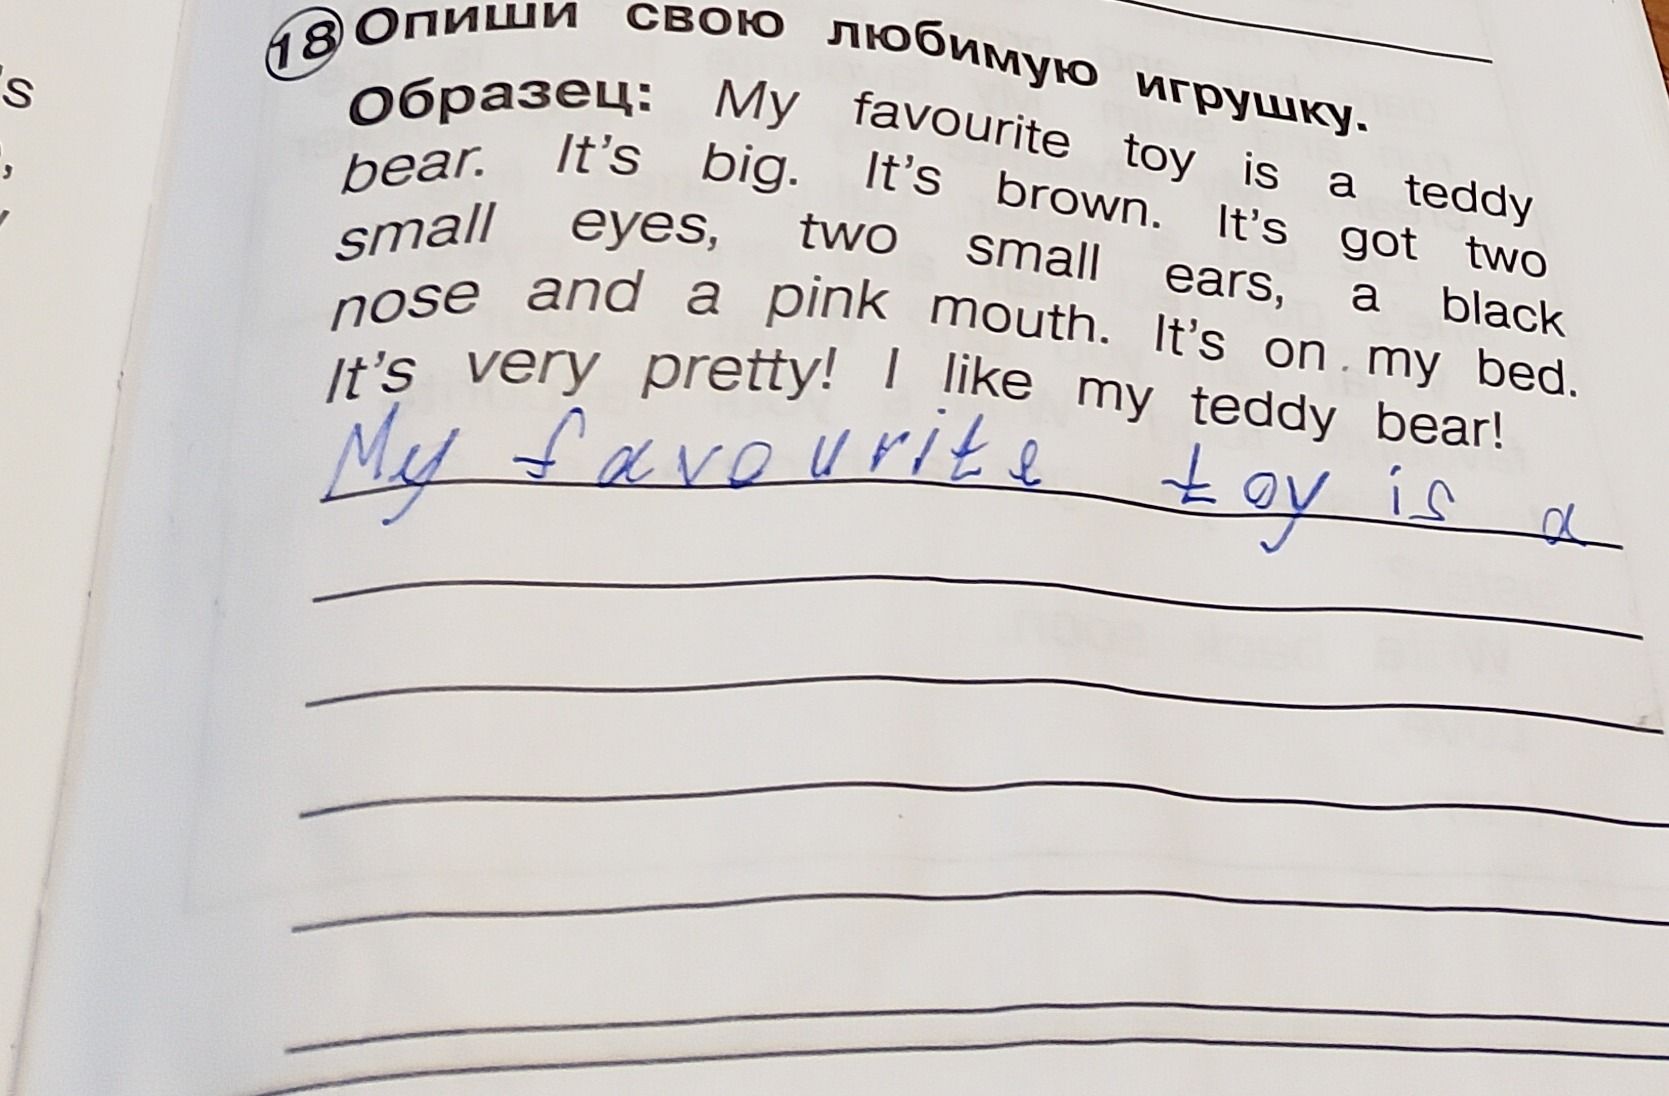 's
,
18 Опиши свою любимую игрушку.
Образец: My favourite toy is a teddy
bear. It's big. It's brown. It's got two
small eyes, two small ears, a black
nose and a pink mouth. It's on my bed.
It's very pretty! I like my teddy bear!
My favourite toy is a